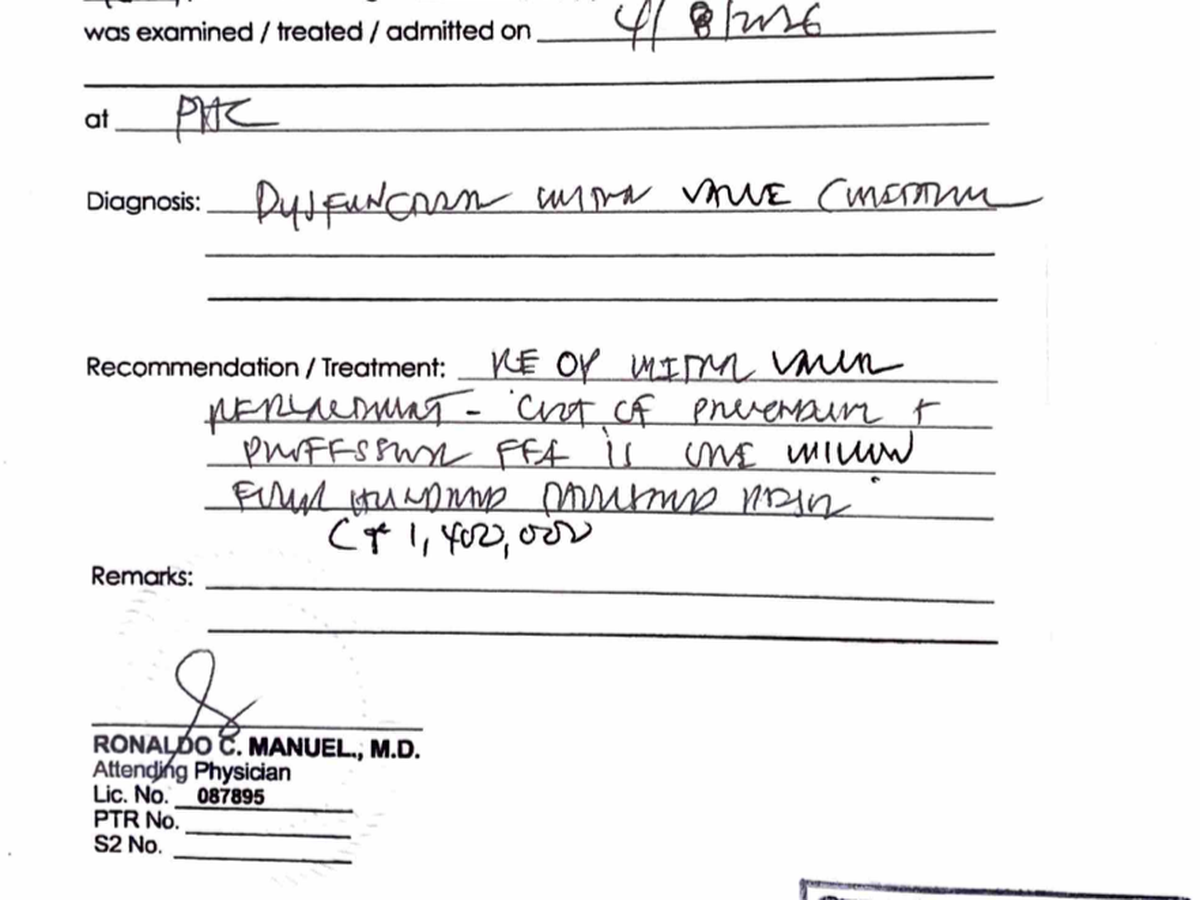 was examined / treated / admitted on 4/8/2026
at PHC
Diagnosis: DYSFUNCTION MITRAL VALVE
Recommendation / Treatment: RE OP MITRAL VALVE
REPLACEMENT - COST OF PROCEDURE +
PROFESSIONAL FEE IS ONE MILLION
FOUR HUNDRED THOUSAND PESOS
(₱ 1,400,000
Remarks:
RONALDO C. MANUEL., M.D.
Attending Physician
Lic. No. 087895
PTR No.
S2 No.